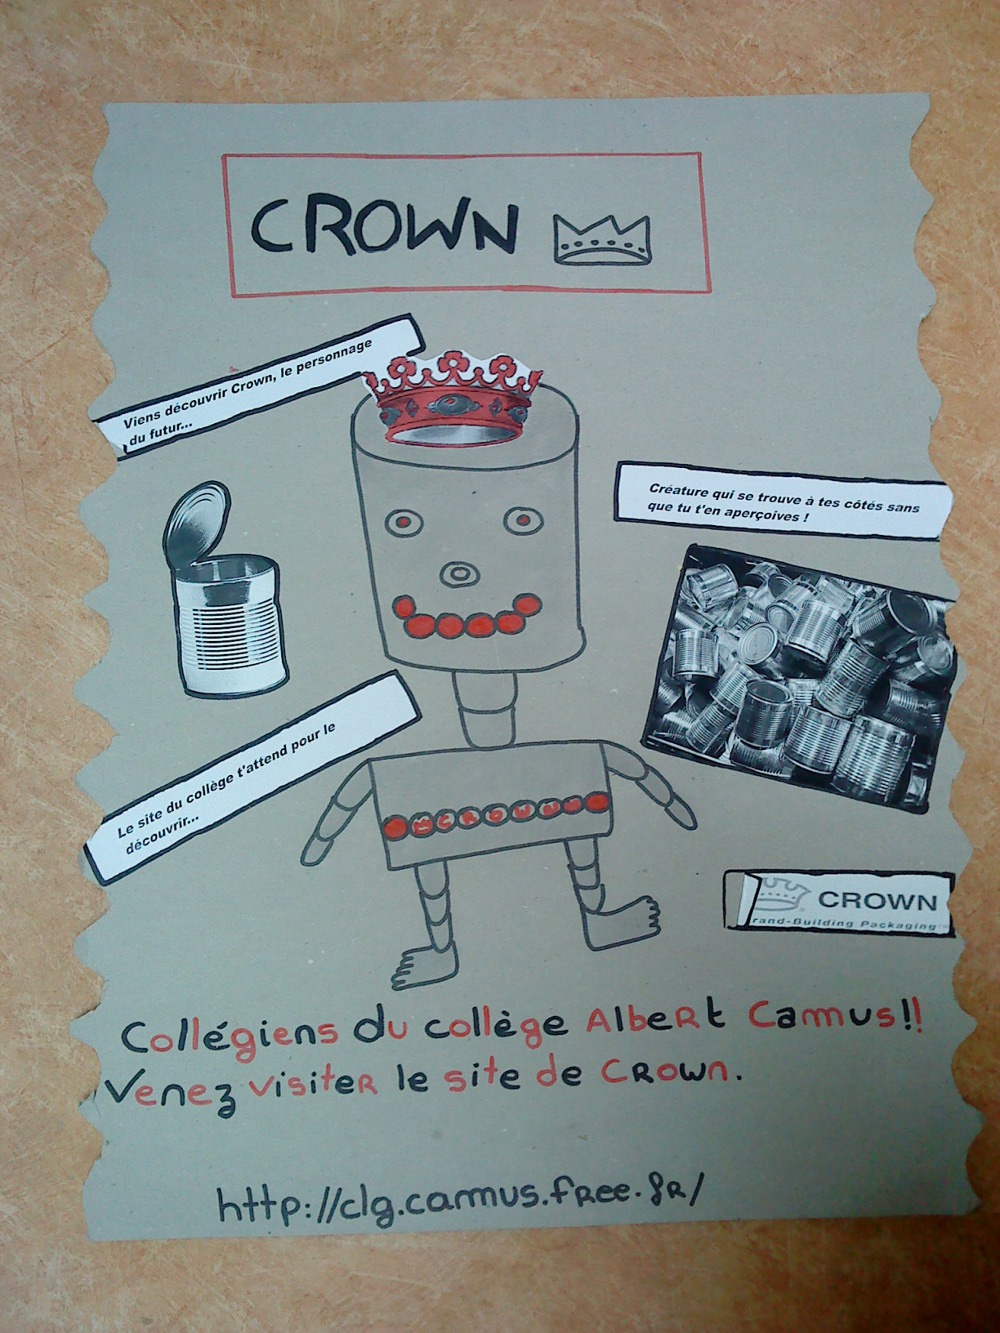 CROWN
Viens découvrir Crown, le personnage
du futur...
Créature qui se trouve à tes côtés sans
que tu t'en aperçoives !
Le site du collège t'attend pour le
découvrir...
CROWN
CROWN
rand-Building Packaging
Collégiens du collège Albert Camus!!
Venez visiter le site de Crown.
http://clg.camus.free.fr/